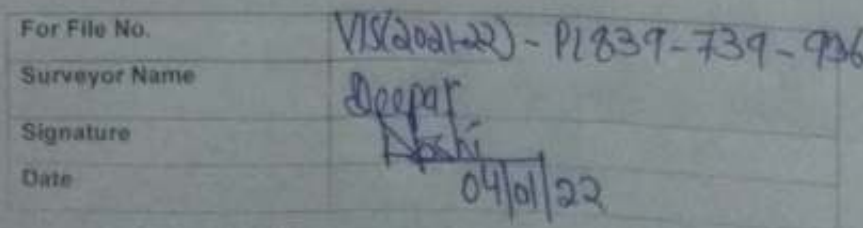 For File No. VIS(2021-22) - PL839-739-936
Surveyor Name Deepak
Signature Joshi
Date 04/01/22